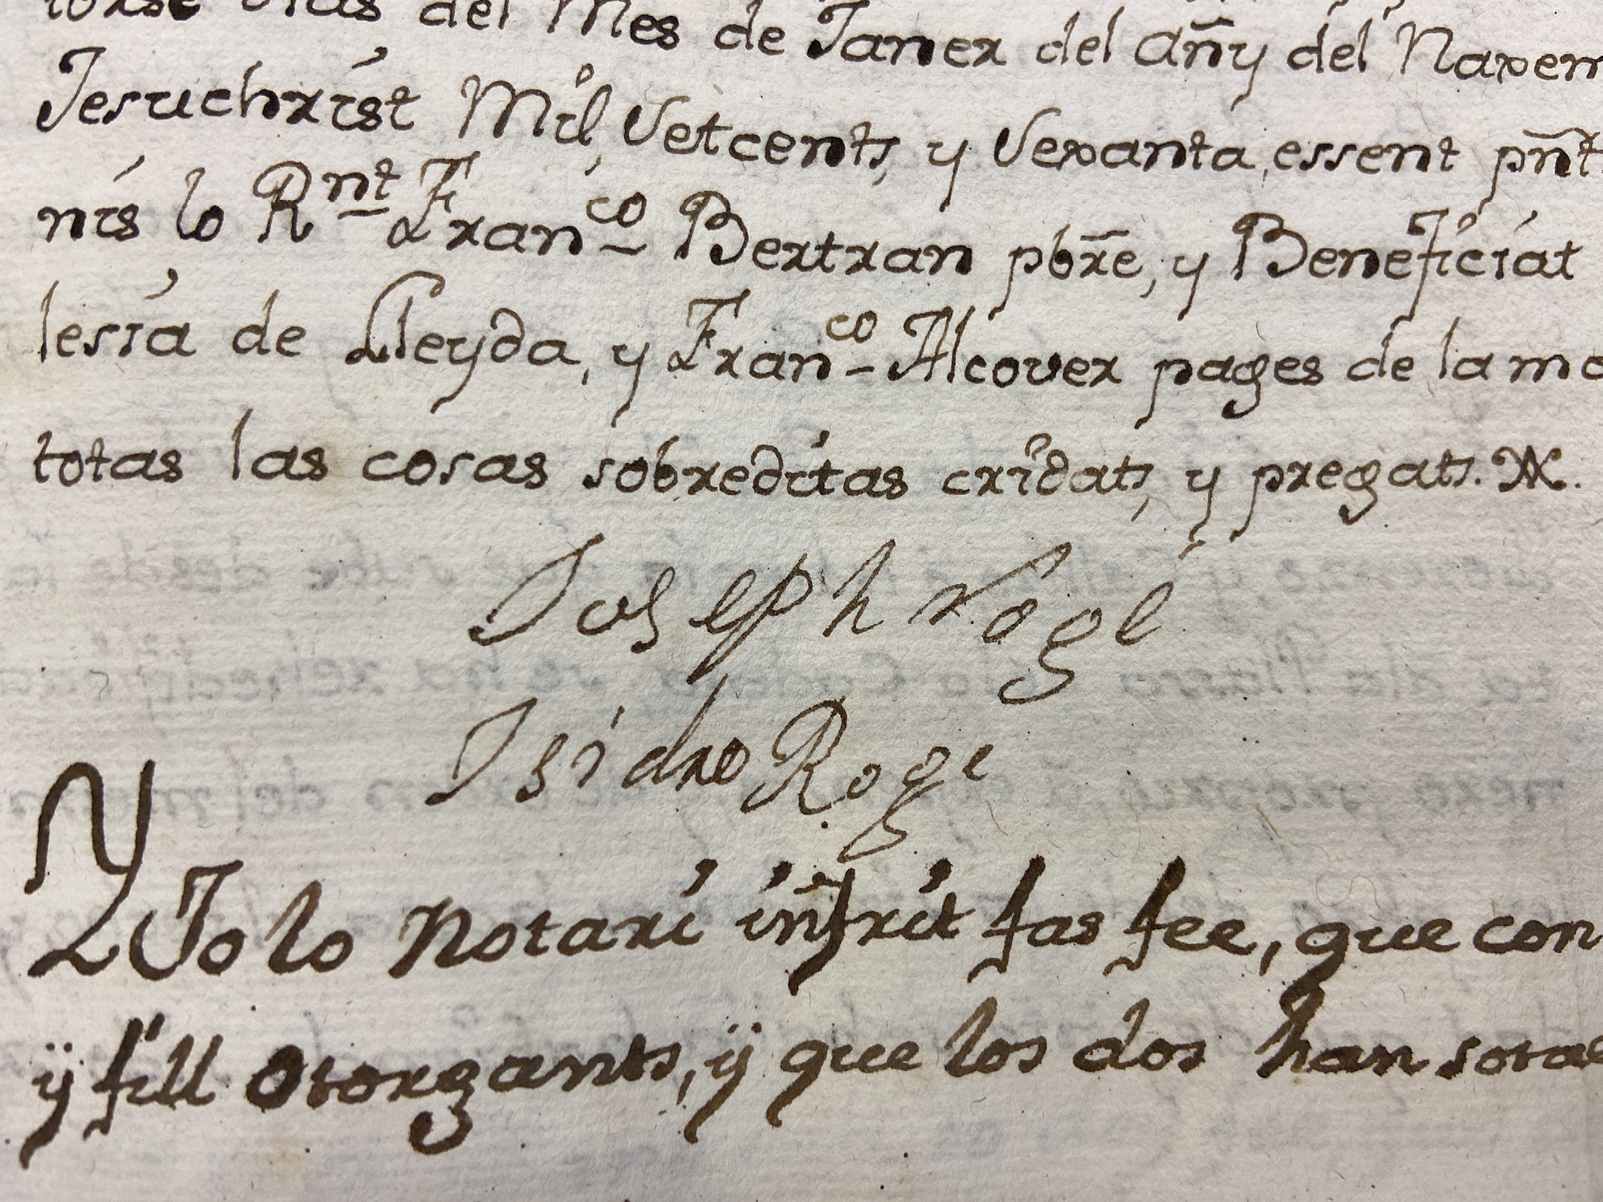 torse dias del Mes de Janer del añy del Naxem
Jesuchrist Mil, Setcents, y Sexanta, essent pñt
nis lo Rnt Franco Bertran pbre, y Beneficiat
lesia de Lleyda, y Franco Alcover pages de la ma
totas las cosas sobreditas cridats, y pregats.
Joseph rogé
Isidro Roge
Y Jo lo Notari infrit fas fee, que con
ÿ fill Otorgants, ÿ que los dos han sotae